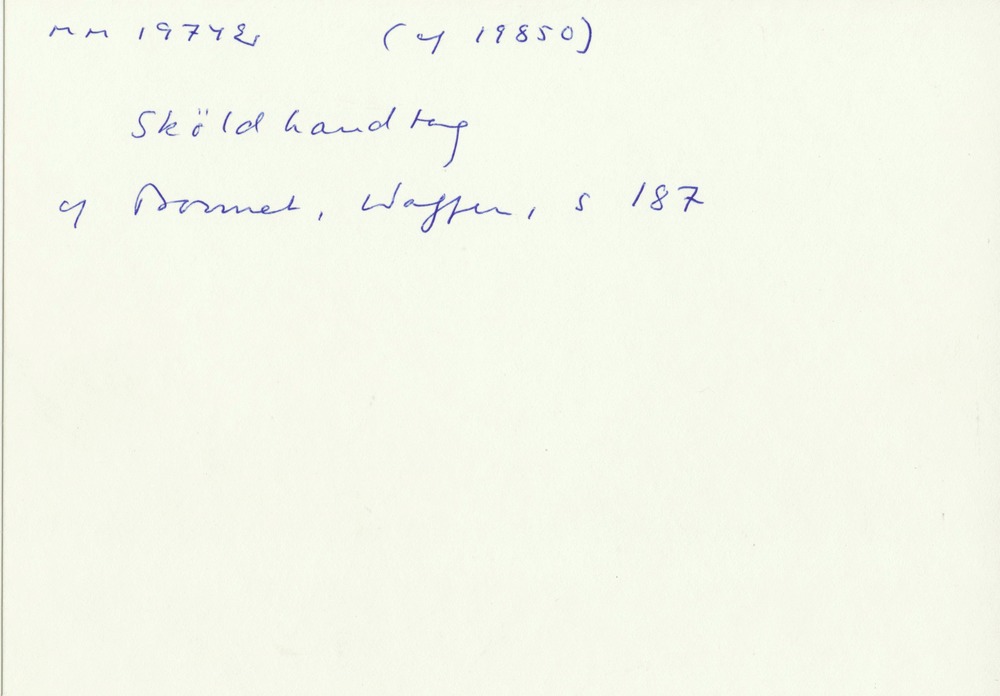 MM 19742 (cf 19850)
Sköldhandtag
cf Bonnet, Waffen, s 187